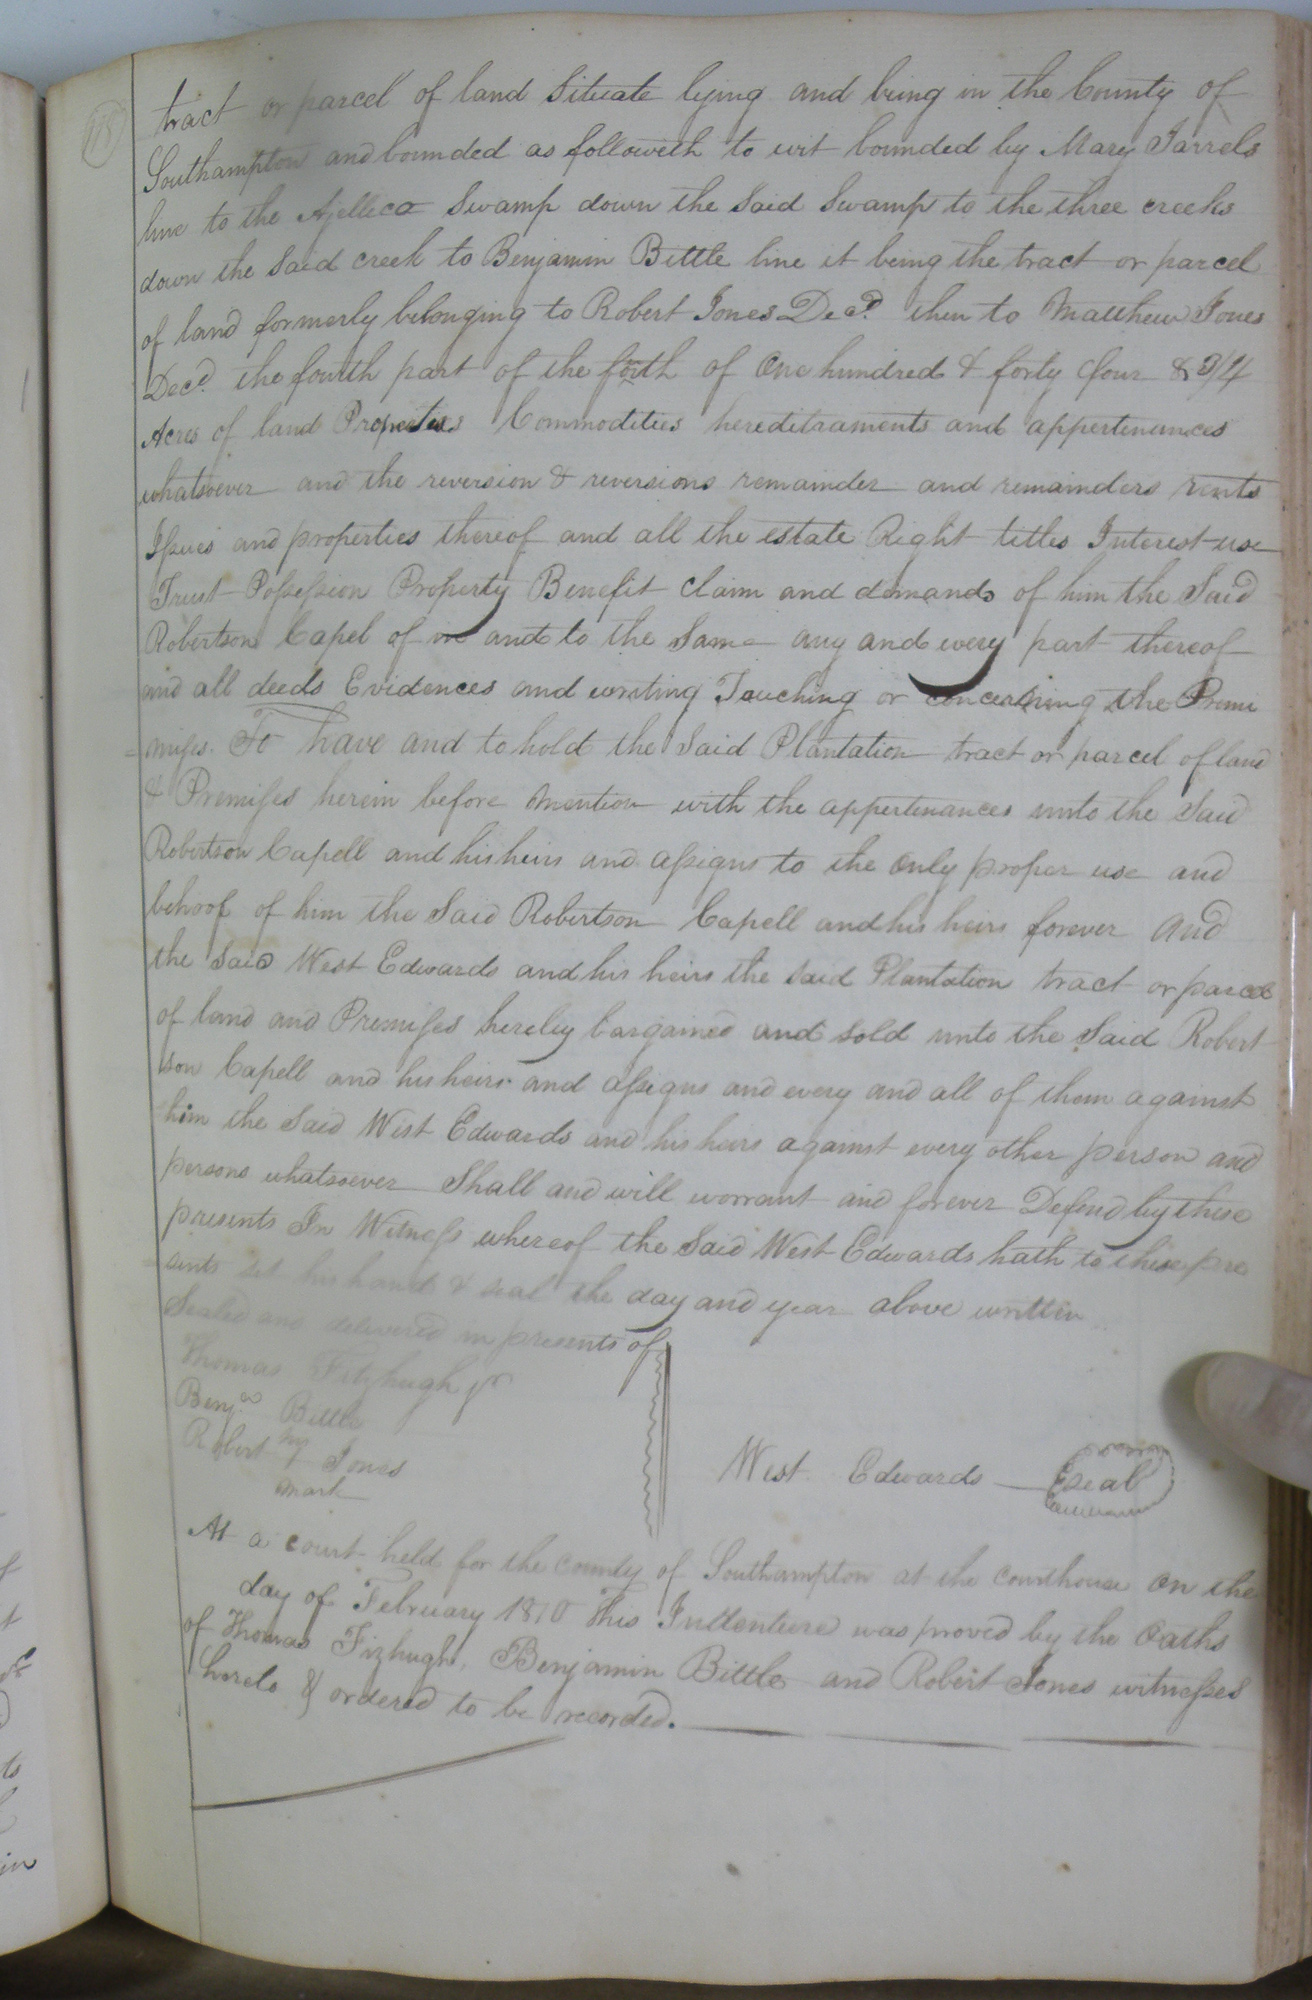 115
tract or parcel of land Situate lying and being in the County of
Southampton and bounded as followeth to wit bounded by Mary Jarrels
line to the Swamp down the Said Swamp to the three creeks
down the Said creek to Benjamin Bittle line it being the tract or parcel
of land formerly belonging to Robert Jones Decd. then to Matthew Jones
Decd. the fourth part of the forth of One hundred & forty four & 3/4
Acres of land Properties Commodities hereditraments and appertenances
whatsoever and the reversion & reversions remainder and remainders rents
Issues and properties thereof and all the estate Right titles Interest use
Trust Possession Property Benefit Claim and demands of him the Said
Robertson Capel of in and to the Same any and every part thereof
and all deeds Evidences and writing Touching or concerning the Premi
=mises. To have and to hold the Said Plantation tract or parcel of land
& Premises herein before mention with the appertenances unto the Said
Robertson Capell and his heirs and assigns to the only proper use and
behoof of him the Said Robertson Capell and his heirs forever And
the Said West Edwards and his heirs the said Plantation tract or parcel
of land and Premises hereby bargained and sold unto the Said Robert
son Capell and his heirs and assigns and every and all of them against
him the Said West Edwards and his heirs against every other person and
persons whatsoever Shall and will worrant and forever Defend by these
presents In Witness whereof the Said West Edwards hath to these pre
sents set his hand & seal the day and year above written
Sealed and delivered in presents of
Thomas Fitzhugh jr
Benja Bittle
Robert Jones
mark
West Edwards Seal
At a court held for the county of Southampton at the courthouse on the
day of February 1810 This Indenture was proved by the Oaths
of Thomas Fizhugh, Benjamin Bittle and Robert Jones witnesses
hereto & ordered to be recorded.